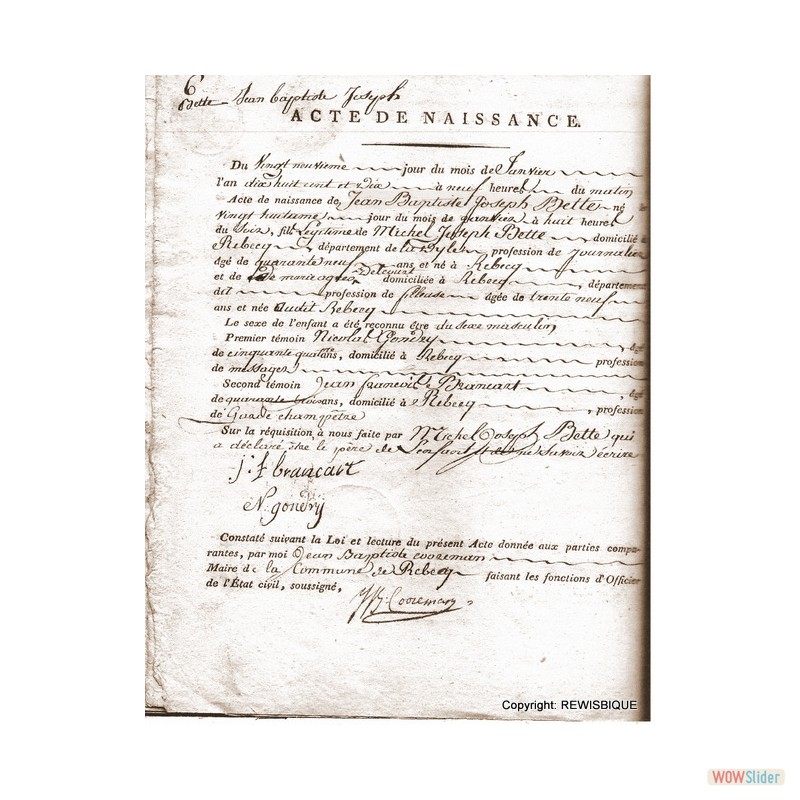 6
Bette Jean baptiste Joseph
ACTE DE NAISSANCE.
Du Vingt neuvieme jour du mois de Janvier
l'an dix huit cent et dix à neuf heures du matin
Acte de naissance de Jean Baptiste Joseph Bette né le
vingt huitieme jour du mois de janvier à huit heures
du soir, fils Legitime de Michel Joseph Bette domicilié à
Rebecq département de la Dyle profession de journalier
âgé de quarante neuf ans et né à Rebecq
et de marie agnes Delcourt domiciliée à Rebecq, département
dit profession de fileuse âgée de trente neuf
ans et née audit Rebecq
Le sexe de l'enfant a été reconnu être du sexe masculin
Premier témoin Nicolas Gondry, âgé
de cinquante quatre ans, domicilié à Rebecq profession
de messager
Second témoin Jean francois Brancart, âgé
de quarante trois ans, domicilié à Rebecq, profession
de Garde champetre
Sur la réquisition à nous faite par Michel Joseph Bette qui
a déclaré être le père de L'enfant et ne savoir écrire
j. f brancart
N. gondry
Constaté suivant la Loi et lecture du présent Acte donnée aux parties compa-
rantes, par moi Jean Baptiste cooreman
Maire de la Commune de Rebecq faisant les fonctions d'Officier
de l'État civil, soussigné,
JB: Cooreman
Copyright: REWISBIQUE
WOWSlider